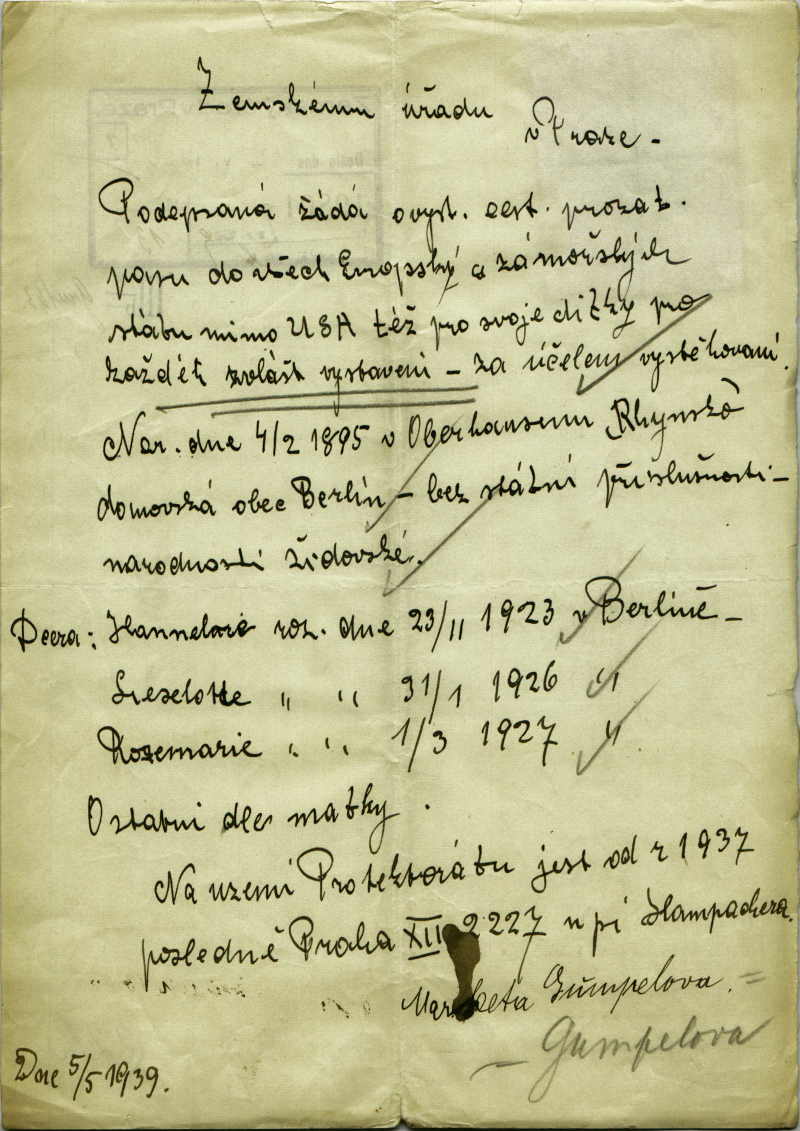 Zemskému úřadu
v Praze -
Podepsaná žádá o vyst. cest. prozat.
pasu do všech Evropský a zámořských
státu mimo USA též pro svoje dítky pro
každé zvlášt vystavení - za účelem vystěhovaní.
Nar. dne 4/2 1895 v Oberhausenu Rhynsko
domovská obec Berlín - bez státní příslušnosti -
narodnosti židovské.
Dcera: Hannelore roz. dne 23/II 1923 v Berlině -
Lieselotte " " 31/1 1926 "
Rosemarie " " 1/3 1927 "
Ostatni dle matky.
Na uzemi Protektorátu jest od r 1937
posledně Praha XII 2227 u pí Hampachera.
Gümpelova.
Gumpelova
Dne 5/5 1939.